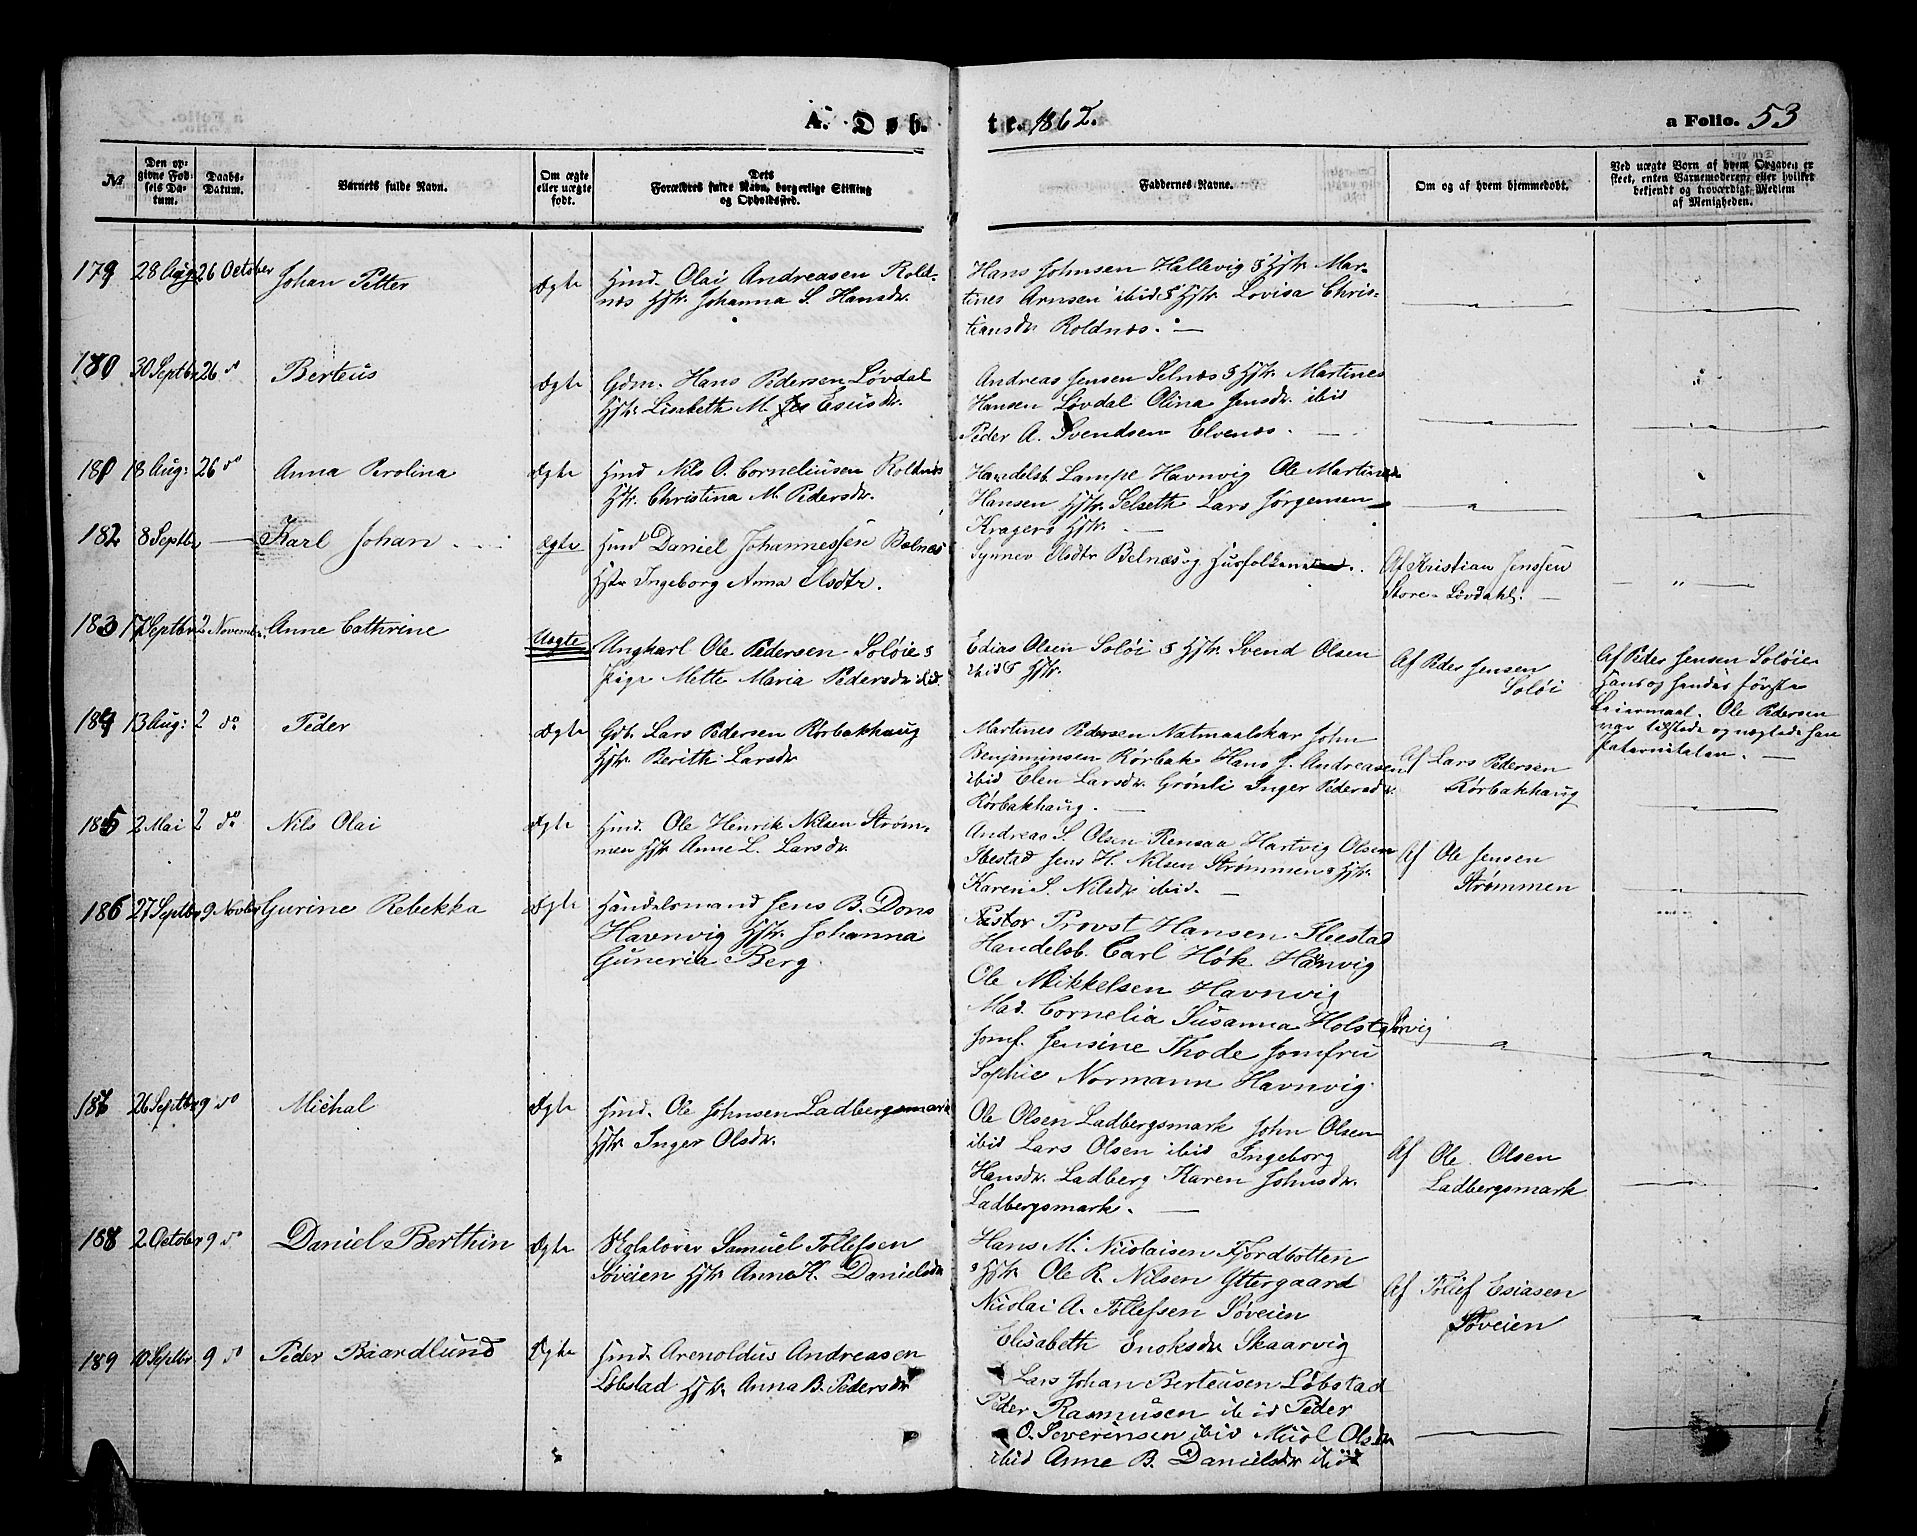 A. Døb-
te. 1862.
a Folio. 53
№
Den op-
givne Fød-
sels Da-
tum.
Daabs-
Datum.
Barnets fulde Navn.
Om ægte
eller uægte
født.
Dets
Forældres fulde Navn, borgerlige Stilling
og Opholdssted.
Faddernes Navne.
Om og af hvem hjemmedøbt.
Ved uægte Børn af hvem Opgaven er
skeet, enten Barnemoderen eller hvilket
bekjendt og troværdigt Medlem
af Menigheden.
179 28 Aug 26 October Johan Petter Ægte
Hmd. Olai Andreasen Rold-
næs Hstr Johanna S. Hansdr.
Hans Johnsen Hallevig & Hstr Mar-
tines Arnsen ibid & Hstr Lovisa Chris-
tiansdr Roldnæs. —
180 30 Septbr 26 do Berteus Ægte
Gdm. Hans Pedersen Løvdal
Hstr Lisbeth M. Esiasdr.
Andreas Jensen Selnæs & Hstr Martines
Hansen Løvdal Olina Jensdr ibid
Peder A. Svendsen Elvenæs. —
181 18 Aug: 26 do Anna Perolina Ægte
Hmd Nils O. Corneliusen Roldnæs
Hstr. Christina M. Pedersdr.
Handelsb. Lampe Havnvig Ole Martinus
Hansen Hstr Selseth Lars Jørgensen
Kragerø Hstr. —
182 8 Septbr — Karl Johan Ægte
Hmd Daniel Johannessen Belnes
Hstr Ingeborg Anna Olsdtr.
Synnev Olsdtr Belnæs og Husfolkene.
Af Kristian Jenssen
Store-Løvdahl. —
183 17 Septbr 2 Novembr. Anne Cathrine Uægte
Ungkarl Ole Pedersen Soløie &
Pige Mette Maria Pedersdr ibid.
Edias Olsen Soløi & Hstr Svend Olsen
ibid & Hstr.
Af Peder Jensen
Soløi
Af Peder Jensen Soløie
Hans og hendes første
Leiermaal. Ole Pedersen
var tilstede og nægtede sin
Paternitaten. —
184 13 Aug: 2 do Peder Ægte
Gdb. Lars Pedersen Rørbakhaug
Hstr Berith Larsdr
Martines Pedersen Natmaalskar John
Benjaminsen Rørbak Hans J. Andreasen
ibid Elen Larsdr. Grønli Inger Pedersdr.
Rørbakhaug. —
Af Lars Pedersen
Rørbakhaug
185 2 Mai 2 do Nils Olai Ægte
Hmd. Ole Henrik Nilsen Strøm-
men Hstr Anne L. Larsdr.
Andreas S. Olsen Rensaa Hartvig Olsen
Ibestad Jens H. Nilsen Strømmen & Hstr.
Karen S. Nilsdr ibid. —
Af Ole Jensen
Strømmen
186 27 Septbr 9 Novbr Gurine Rebekka Ægte
Handelsmand Jens B. Dons
Havnvig Hstr. Johanna
Guneria Berg.
Pastor Provst Hansen Ibestad
Handelsb. Carl Høk Havnvig
Ole Mikkelsen Havnvig
Mad. Cornelia Susanna Holst
Jomf. Jensine Thode Jomfru
Sophie Normann Havnvig.
187 26 Septbr 9 do Michal Ægte
Hmd. Ole Johnsen Ladbergsmark
Hstr Inger Olsdr.
Ole Olsen Ladbergsmark John Olsen
ibid Lars Olsen ibid Ingeborg
Hansdr. Ladberg Karen Johnsdr.
Ladbergsmark. —
Af Ole Olsen
Ladbergsmark
188 2 October 9 do Daniel Berthin Ægte
Skolelærer Samuel Tollefsen
Søveien Hstr Anna K. Danielsdr
Hans M. Nicolaisen Fjordbotten
& Hstr Ole R. Nilsen Yttergaard
Nicolai A. Tollefsen Søveien
Elisabeth Enoksdr Skaarvig
Af Tollef Esiasen
Søveien
189 10 Septbr 9 do Peder Baardlund Ægte
Hmd. Arenoldus Andreasen
Løbstad Hstr. Anna B. Pedersdr
Lars Johan Berteusen Løbstad
Peder Rasmusen ibid Peder
O. Severinsen ibid Olsdr
ibid Anne B. Danielsdr ibid